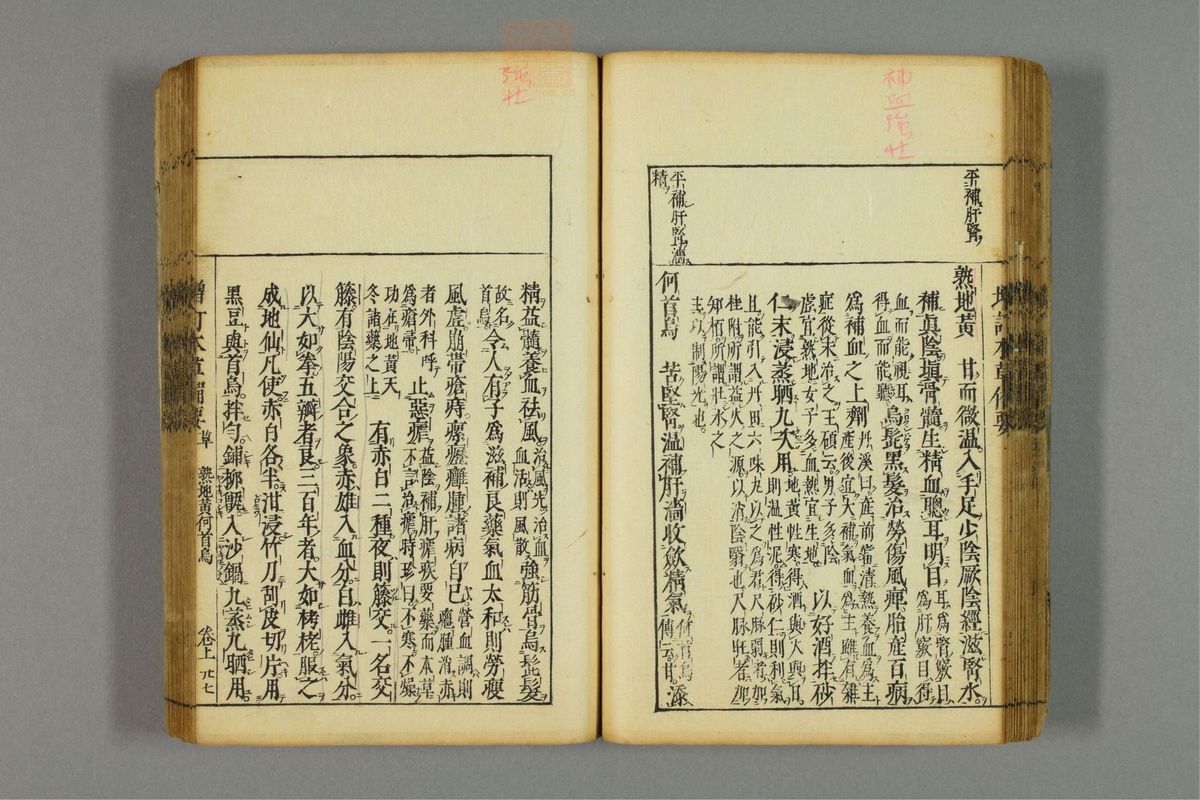 補血強壮
平補肝腎
熟地黃　甘而微温入手足少陰厥陰經滋腎水
補眞陰塡骨髓生精血聰耳明目耳爲腎竅目
爲肝竅目得
血而能視耳
得血而能聽烏髭黑髮治勞傷風痺胎產百病
爲補血之上劑丹溪曰產前當清熱養血爲主
產後宜大補氣血爲主雖有雜
症從末治之王碩云男子多陰
虛宜熟地女子多血熱宜生地以好酒拌砂
仁末浸蒸晒九次用地黃性寒得酒與火與日
則温性泥得砂仁則利氣
且能引入丹田六味丸以之爲君尺脉弱者加
桂附所謂益火之源以消陰翳也尺脉旺者加
知栢所謂壯水之
主以制陽光也
平補肝腎濇
精
何首烏　苦堅腎温補肝濇收斂精氣
添
強壮
精益髓養血祛風治風先治血
血活則風散強筋骨烏髭髮
故名
首烏令人有子爲滋補良藥氣血太和則勞瘦
風虛崩帶瘡痔瘰癧癰腫諸病自已營血調則
癰腫消赤
者外科呼
爲瘡帚止惡瘧益陰補肝瘧疾要藥而本草
不言治瘧時珍曰不寒不燥
功在地黃天
冬諸藥之上有赤白二種夜則籐交一名交
籐有陰陽交合之象赤雄入血分白雌入氣分
以大如拳五瓣者良三百年者大如栲栳服之
成地仙凡使赤白各半泔浸竹刀刮皮切片用
黑豆與首烏拌勻鋪柳甑入沙鍋九蒸九晒用
增訂本草備要　草　熟地黃何首烏　卷上　廿七